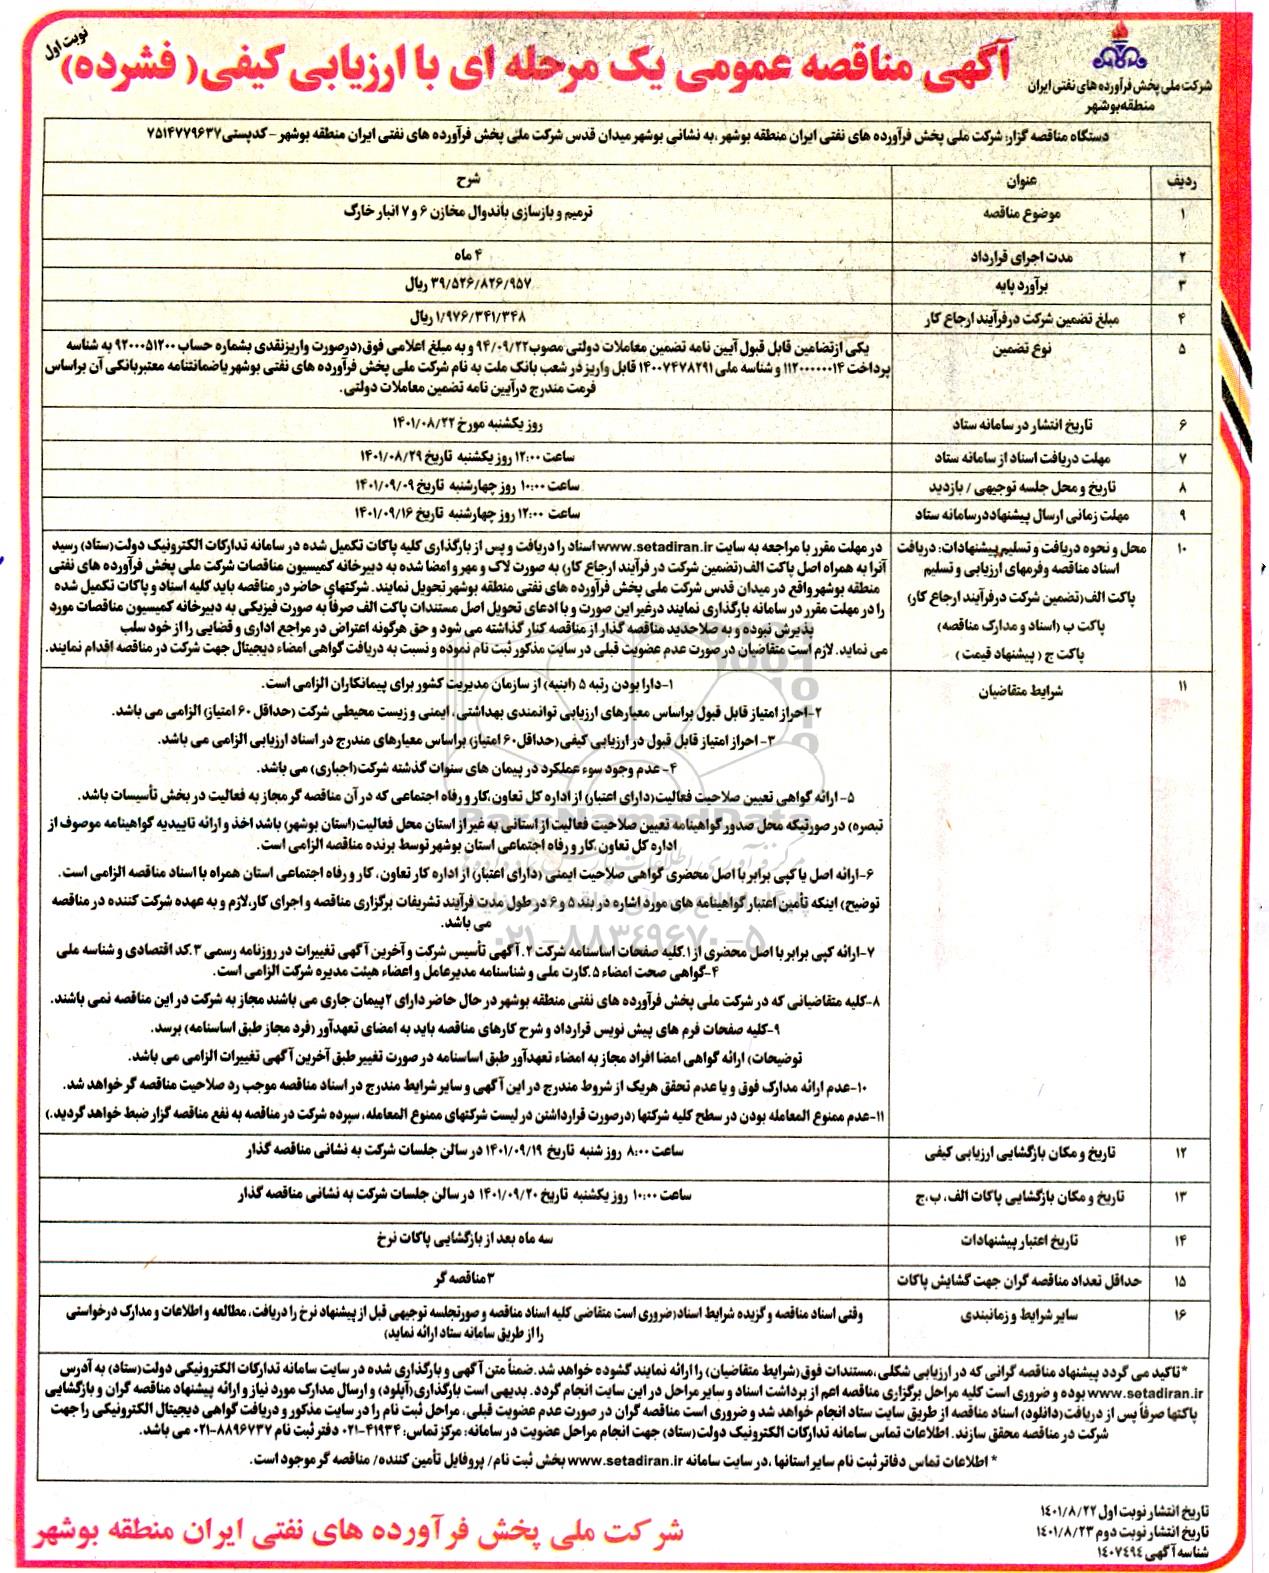 نوبت اول
آگهی مناقصه عمومی یک مرحله ای با ارزیابی کیفی( فشرده)
شرکت ملی پخش فرآورده های نفتی ایران
منطقه بوشهر
دستگاه مناقصه گزار: شرکت ملی پخش فرآورده های نفتی ایران منطقه بوشهر ،به نشانی بوشهر میدان قدس شرکت ملی پخش فرآورده های نفتی ایران منطقه بوشهر – کدپستی۷۵۱۴۷۷۹۶۳۷
ردیف عنوان شرح
۱ موضوع مناقصه ترمیم و بازسازی باندوال مخازن ۶ و ۷ انبار خارک
۲ مدت اجرای قرارداد ۴ ماه
۳ برآورد پایه ۳۹/۵۲۶/۸۲۶/۹۵۷ ریال
۴ مبلغ تضمین شرکت درفرآیند ارجاع کار ۱/۹۷۶/۳۴۱/۳۴۸ ریال
۵ نوع تضمین یکی ازتضامین قابل قبول آیین نامه تضمین معاملات دولتی مصوب۹۴/۰۹/۲۲ و به مبلغ اعلامی فوق(درصورت واریزنقدی بشماره حساب ۹۲۰۰۰۵۱۲۰۰ به شناسه
پرداخت ۱۱۲۰۰۰۰۰۰۱۴ و شناسه ملی ۱۴۰۰۷۴۷۸۲۹۱ قابل واریز در شعب بانک ملت به نام شرکت ملی پخش فرآورده های نفتی بوشهر یاضمانتنامه معتبربانکی آن براساس
فرمت مندرج درآیین نامه تضمین معاملات دولتی.
۶ تاریخ انتشار در سامانه ستاد روز یکشنبه مورخ ۱۴۰۱/۰۸/۲۲
۷ مهلت دریافت اسناد از سامانه ستاد ساعت ۱۲:۰۰ روز یکشنبه تاریخ ۱۴۰۱/۰۸/۲۹
۸ تاریخ و محل جلسه توجیهی / بازدید ساعت ۱۰:۰۰ روز چهارشنبه تاریخ ۱۴۰۱/۰۹/۰۹
۹ مهلت زمانی ارسال پیشنهاددرسامانه ستاد ساعت ۱۲:۰۰ روز چهارشنبه تاریخ ۱۴۰۱/۰۹/۱۶
۱۰ محل و نحوه دریافت و تسلیم پیشنهادات: دریافت
اسناد مناقصه وفرمهای ارزیابی و تسلیم
پاکت الف(تضمین شرکت درفرآیند ارجاع کار)
پاکت ب (اسناد و مدارک مناقصه)
پاکت ج ( پیشنهاد قیمت )
در مهلت مقرر با مراجعه به سایت www.setadiran.ir اسناد را دریافت و پس از بارگذاری کلیه پاکات تکمیل شده در سامانه تدارکات الکترونیک دولت(ستاد) رسید
آنرا به همراه اصل پاکت الف(تضمین شرکت در فرآیند ارجاع کار) به صورت لاک و مهر و امضا شده به دبیرخانه کمیسیون مناقصات شرکت ملی پخش فرآورده های نفتی
منطقه بوشهر واقع در میدان قدس شرکت ملی پخش فرآورده های نفتی منطقه بوشهر تحویل نمایند. شرکتهای حاضر در مناقصه باید کلیه اسناد و پاکات تکمیل شده
را در مهلت مقرر در سامانه بارگذاری نمایند درغیر این صورت و با ادعای تحویل اصل مستندات پاکت الف صرفاً به صورت فیزیکی به دبیرخانه کمیسیون مناقصات مورد
پذیرش نبوده و به صلاحدید مناقصه گذار از مناقصه کنار گذاشته می شود و حق هرگونه اعتراض در مراجع اداری و قضایی را از خود سلب
می نماید. لازم است متقاضیان در صورت عدم عضویت قبلی در سایت مذکور ثبت نام نموده و نسبت به دریافت گواهی امضاء دیجیتال جهت شرکت در مناقصه اقدام نمایند.
۱۱ شرایط متقاضیان
۱-دارا بودن رتبه ۵ (ابنیه) از سازمان مدیریت کشور برای پیمانکاران الزامی است.
۲-احراز امتیاز قابل قبول براساس معیارهای ارزیابی توانمندی بهداشتی، ایمنی و زیست محیطی شرکت (حداقل ۶۰ امتیاز) الزامی می باشد.
۳- احراز امتیاز قابل قبول در ارزیابی کیفی(حداقل۶۰ امتیاز) براساس معیارهای مندرج در اسناد ارزیابی الزامی می باشد.
۴- عدم وجود سوء عملکرد در پیمان های سنوات گذشته شرکت(اجباری) می باشد.
۵- ارائه گواهی تعیین صلاحیت فعالیت(دارای اعتبار) از اداره کل تعاون،کار و رفاه اجتماعی که در آن مناقصه گر مجاز به فعالیت در بخش تأسیسات باشد.
تبصره) در صورتیکه محل صدور گواهینامه تعیین صلاحیت فعالیت از استانی به غیر از استان محل فعالیت(استان بوشهر) باشد اخذ و ارائه تاییدیه گواهینامه موصوف از
اداره کل تعاون،کار و رفاه اجتماعی استان بوشهر توسط برنده مناقصه الزامی است.
۶-ارائه اصل یا کپی برابر با اصل محضری گواهی صلاحیت ایمنی (دارای اعتبار) از اداره کار تعاون، کار و رفاه اجتماعی استان همراه با اسناد مناقصه الزامی است.
توضیح) اینکه تأمین اعتبار گواهینامه های مورد اشاره در بند ۵ و ۶ در طول مدت فرآیند تشریفات برگزاری مناقصه و اجرای کار،لازم و به عهده شرکت کننده در مناقصه
می باشد.
۷-ارائه کپی برابر با اصل محضری از ۱.کلیه صفحات اساسنامه شرکت ۲. آگهی تأسیس شرکت و آخرین آگهی تغییرات در روزنامه رسمی ۳.کد اقتصادی و شناسه ملی
۴-گواهی صحت امضاء ۵.کارت ملی و شناسنامه مدیرعامل و اعضاء هیئت مدیره شرکت الزامی است.
۸-کلیه متقاضیانی که در شرکت ملی پخش فرآورده های نفتی منطقه بوشهر در حال حاضر دارای ۲پیمان جاری می باشند مجاز به شرکت در این مناقصه نمی باشند.
۹-کلیه صفحات فرم های پیش نویس قرارداد و شرح کارهای مناقصه باید به امضای تعهدآور (فرد مجاز طبق اساسنامه) برسد.
توضیحات) ارائه گواهی امضا افراد مجاز به امضاء تعهدآور طبق اساسنامه در صورت تغییر طبق آخرین آگهی تغییرات الزامی می باشد.
۱۰-عدم ارائه مدارک فوق و یا عدم تحقق هریک از شروط مندرج در این آگهی و سایر شرایط مندرج در اسناد مناقصه موجب رد صلاحیت مناقصه گر خواهد شد.
۱۱-عدم ممنوع المعامله بودن در سطح کلیه شرکتها (درصورت قرارداشتن در لیست شرکتهای ممنوع المعامله، سپرده شرکت در مناقصه به نفع مناقصه گزار ضبط خواهد گردید.)
۱۲ تاریخ و مکان بازگشایی ارزیابی کیفی ساعت ۸:۰۰ روز شنبه تاریخ ۱۴۰۱/۰۹/۱۹ در سالن جلسات شرکت به نشانی مناقصه گذار
۱۳ تاریخ و مکان بازگشایی پاکات الف، ب،ج ساعت ۱۰:۰۰ روز یکشنبه تاریخ ۱۴۰۱/۰۹/۲۰ در سالن جلسات شرکت به نشانی مناقصه گذار
۱۴ تاریخ اعتبار پیشنهادات سه ماه بعد از بازگشایی پاکات نرخ
۱۵ حداقل تعداد مناقصه گران جهت گشایش پاکات ۳مناقصه گر
۱۶ سایر شرایط و زمانبندی وقتی اسناد مناقصه و گزیده شرایط اسناد(ضروری است متقاضی کلیه اسناد مناقصه و صورتجلسه توجیهی قبل از پیشنهاد نرخ را دریافت، مطالعه و اطلاعات و مدارک درخواستی
را از طریق سامانه ستاد ارائه نماید)
*تاکید می گردد پیشنهاد مناقصه گرانی که در ارزیابی شکلی،مستندات فوق(شرایط متقاضیان) را ارائه نمایند گشوده خواهد شد.ضمناً متن آگهی و بارگذاری شده در سایت سامانه تدارکات الکترونیکی دولت(ستاد) به آدرس
www.setadiran.ir بوده و ضروری است کلیه مراحل برگزاری مناقصه اعم از برداشت اسناد و سایر مراحل در این سایت انجام گردد. بدیهی است بارگذاری(آپلود) و ارسال مدارک مورد نیاز و ارائه پیشنهاد مناقصه گران و بازگشایی
پاکتها صرفاً پس از دریافت(دانلود) اسناد مناقصه از طریق سایت ستاد انجام خواهد شد و ضروری است مناقصه گران در صورت عدم عضویت قبلی، مراحل ثبت نام را در سایت مذکور و دریافت گواهی دیجیتال الکترونیکی را جهت
شرکت در مناقصه محقق سازند. اطلاعات تماس سامانه تدارکات الکترونیک دولت(ستاد) جهت انجام مراحل عضویت در سامانه: مرکز تماس: ۴۱۹۳۴-۰۲۱ دفتر ثبت نام ۸۸۹۶۷۳۷-۰۲۱ می باشد.
* اطلاعات تماس دفاتر ثبت نام سایر استانها ،در سایت سامانه www.setadiran.ir بخش ثبت نام/ پروفایل تأمین کننده/ مناقصه گر موجود است.
تاریخ انتشار نوبت اول ۱۴۰۱/۸/۲۲
تاریخ انتشار نوبت دوم ۱۴۰۱/۸/۲۳
شناسه آگهی ۱۴۰۷۴۹۴
شرکت ملی پخش فرآورده های نفتی ایران منطقه بوشهر
ParsNamadData
۰۲۱-۸۸۳۴۹۶۷۰-۵